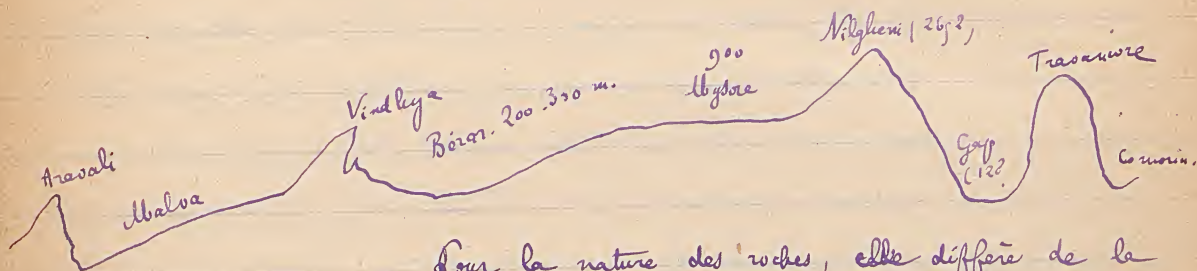 Aravali
Malva
Vindhya
Bérar. 200-300 m.
900
Mysore
Nilgheni (2652)
Gap
(122
Travancore
Comorin.
Pour la nature des roches, elle diffère de la